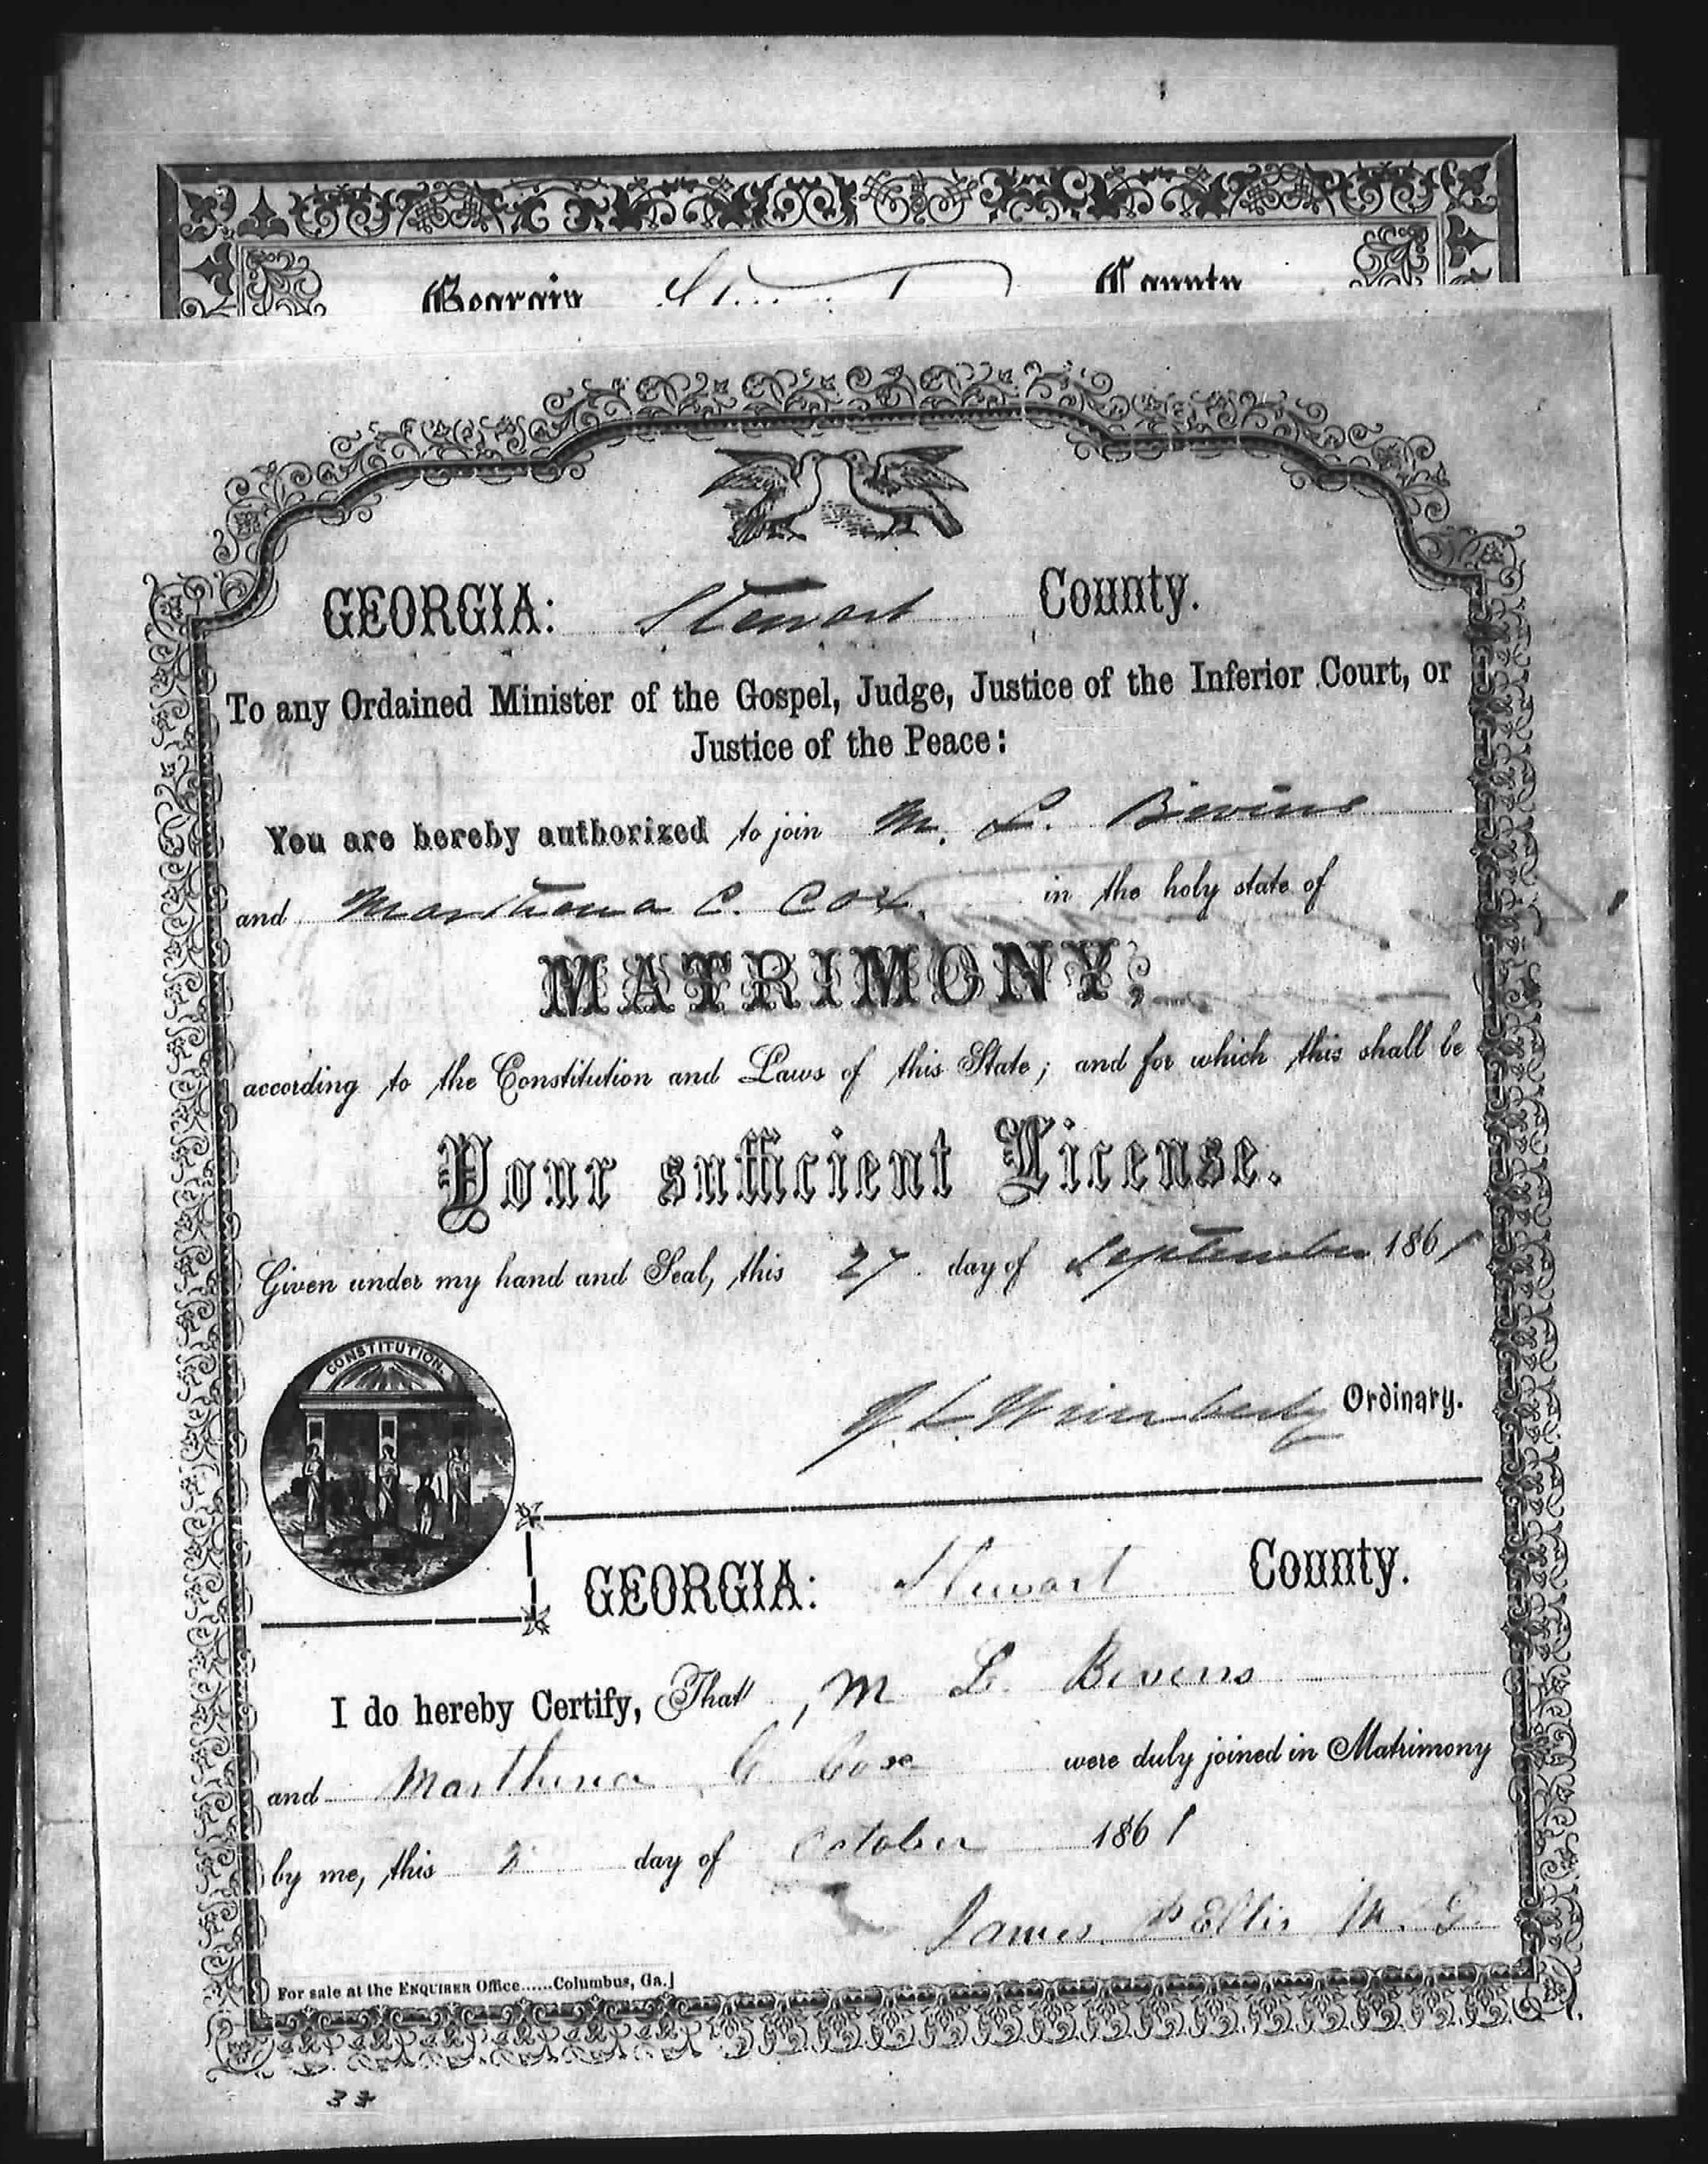 Georgia County
GEORGIA: Stewart County.
To any Ordained Minister of the Gospel, Judge, Justice of the Inferior Court, or
Justice of the Peace:
You are hereby authorized to join M. L. Bivins
and Marthena C. Cox in the holy state of
MATRIMONY;
according to the Constitution and Laws of this State; and for which this shall be
Your sufficient License.
Given under my hand and Seal, this 27 day of September 1861
CONSTITUTION.
J. L. Wimberly Ordinary.
GEORGIA: Stewart County.
I do hereby Certify, That M L. Bivens
and Marthena C Coxe were duly joined in Matrimony
by me, this 2 day of October 1861
James Ellis M. G.
For sale at the ENQUIRER Office......Columbus, Ga.]